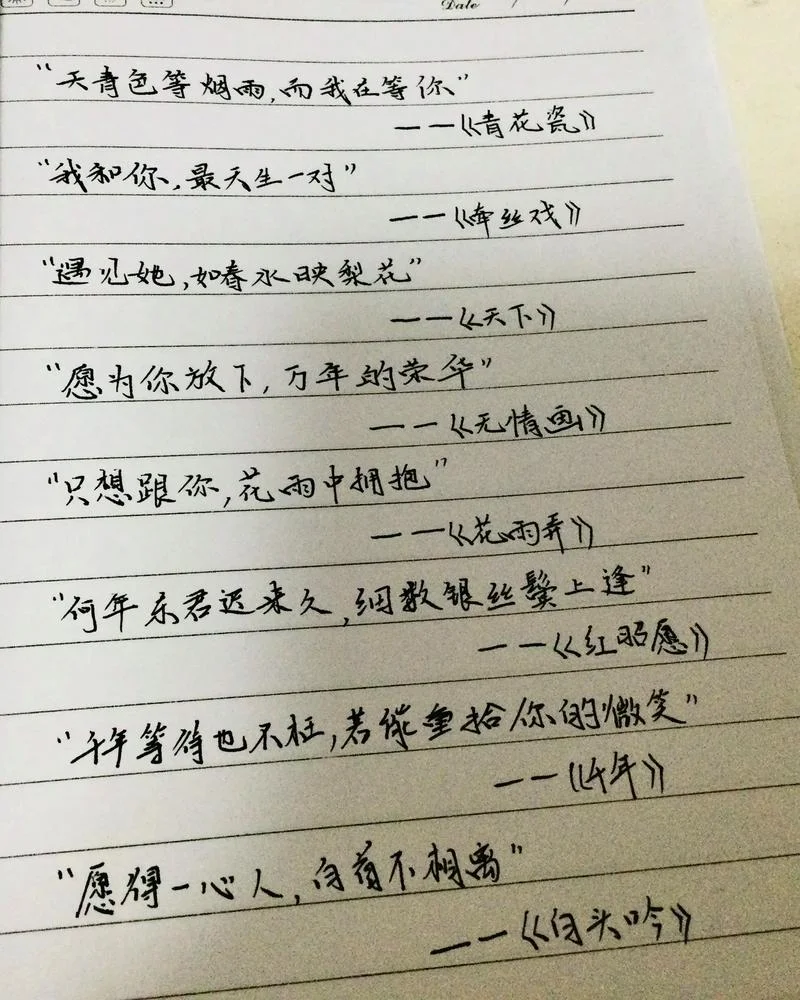 Date / /
“天青色等烟雨，而我在等你”
——《青花瓷》
“我和你，最天生一对”
——《牵丝戏》
“遇见她，如春水映梨花”
——《天下》
“愿为你放下，万年的荣华”
——《无情画》
“只想跟你，花雨中拥抱”
——《花雨弄》
“何年东君迟来久，细数银丝鬓上逢”
——《红昭愿》
“千年等待也不枉，若能重拾你的微笑”
——《千年》
“愿得一心人，白首不相离”
——《白头吟》